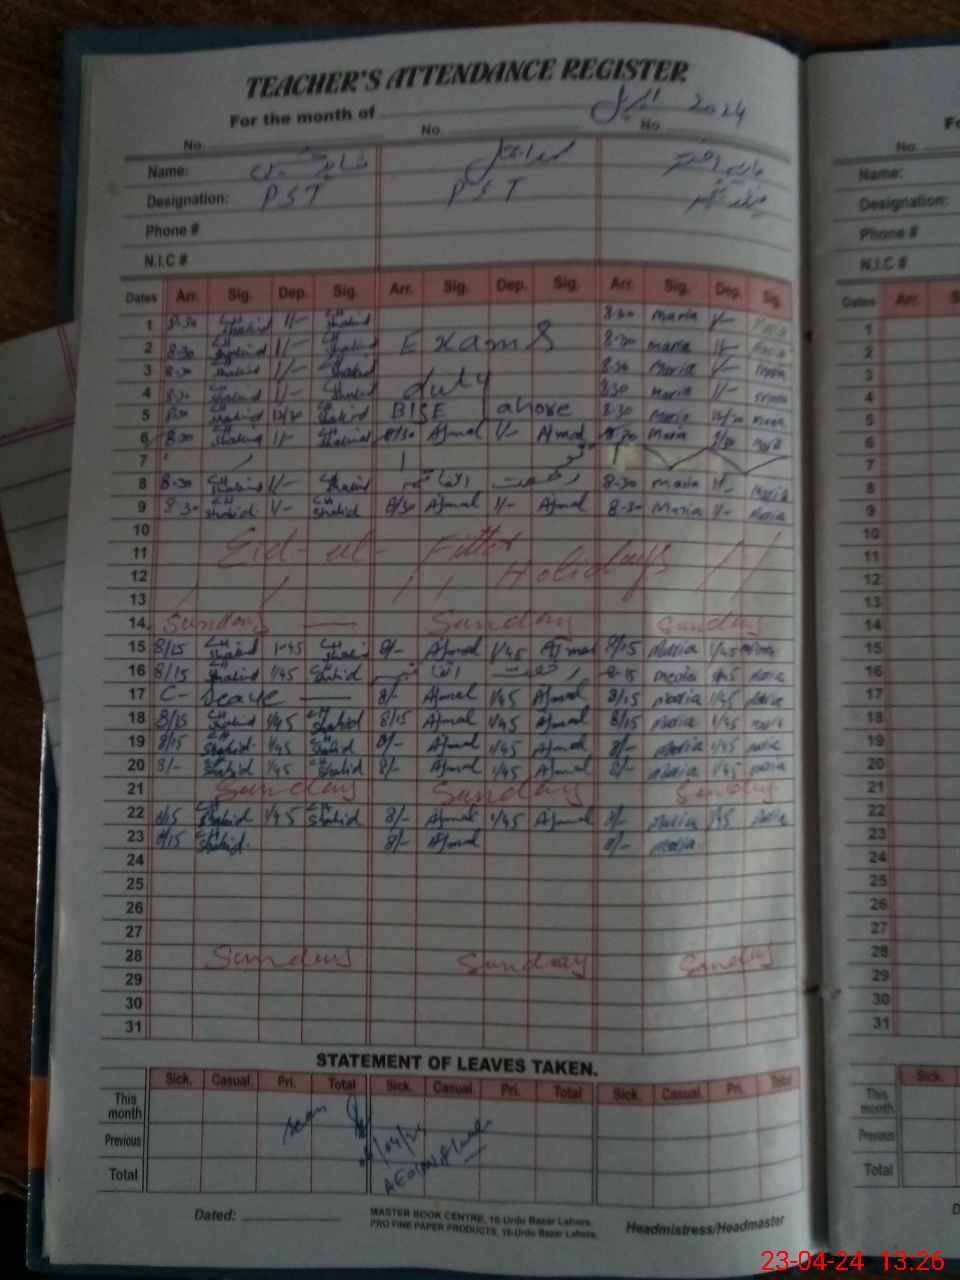 TEACHER'S ATTENDANCE REGISTER
For the month of اپریل 2024
No. No. No.
Name: شاہد
Designation: PST PST
Phone #
N.I.C #
Dates Arr. Sig. Dep. Sig. Arr. Sig. Dep. Sig. Arr. Sig. Dep. Sig.
1 8-30 CH Shahid 1/- CH Shahid 8-30 Maria 1/-
2 8-30 CH Shahid 1/- CH Shahid Exams 8-30 Maria 1/-
3 8-30 CH Shahid 1/- CH Shahid 8-30 Maria 1/- Maria
4 8-30 CH Shahid 1/- CH Shahid duty 8-30 Maria 1/- Maria
5 8-30 CH Shahid 12/30 CH Shahid BISE Lahore 8-30 Maria 12/30 Maria
6 8-30 CH Shahid 1/- CH Shahid 8/30 Ajmal 1/- Ajmal 8-30 Maria Maria
7
8 8-30 CH Shahid 1/- CH Shahid اتفاقیہ رخصت 8-30 Maria 1/- Maria
9 8-30 CH Shahid 1/- CH Shahid 8/30 Ajmal 1/- Ajmal 8-30 Maria 1/- Maria
10
11 Eid-ul-Fitter
12 Holidays
13
14 Sunday Sunday Sunday
15 8/15 CH Shahid 1-45 CH Shahid 8/- Ajmal 1/45 Ajmal 8/15 Maria 1/45 Maria
16 8/15 CH Shahid 1/45 CH Shahid اتفاقیہ رخصت 8-15 Maria 1-45 Maria
17 C- Leave 8/- Ajmal 1/45 Ajmal 8/15 Maria 1/45 Maria
18 8/15 CH Shahid 1/45 CH Shahid 8/15 Ajmal 1/45 Ajmal 8/15 Maria 1/45 Maria
19 8/15 CH Shahid 1/45 CH Shahid 8/- Ajmal 1/45 Ajmal 8/- Maria 1/45 Maria
20 8/- CH Shahid 1/45 CH Shahid 8/- Ajmal 1/45 Ajmal 8/- Maria 1/45 Maria
21 Sunday Sunday Sunday
22 8/15 CH Shahid 1/45 CH Shahid 8/- Ajmal 1/45 Ajmal 8/- Maria 1/45 Maria
23 8/15 CH Shahid 8/- Ajmal 8/- Maria
24
25
26
27
28 Sunday Sunday Sunday
29
30
31
STATEMENT OF LEAVES TAKEN.
Sick. Casual. Pri. Total Sick. Casual. Pri. Total Sick. Casual. Pri. Total
This month
Previous
Total
Dated:
MASTER BOOK CENTRE, 16-Urdu Bazar Lahore.
PRO FINE PAPER PRODUCTS, 16-Urdu Bazar Lahore.
Headmistress/Headmaster
No.
Name:
Designation:
Phone #
N.I.C #
Dates Arr.
1
2
3
4
5
6
7
8
9
10
11
12
13
14
15
16
17
18
19
20
21
22
23
24
25
26
27
28
29
30
31
Sick.
This month
Previous
Total
23-04-24 13:26